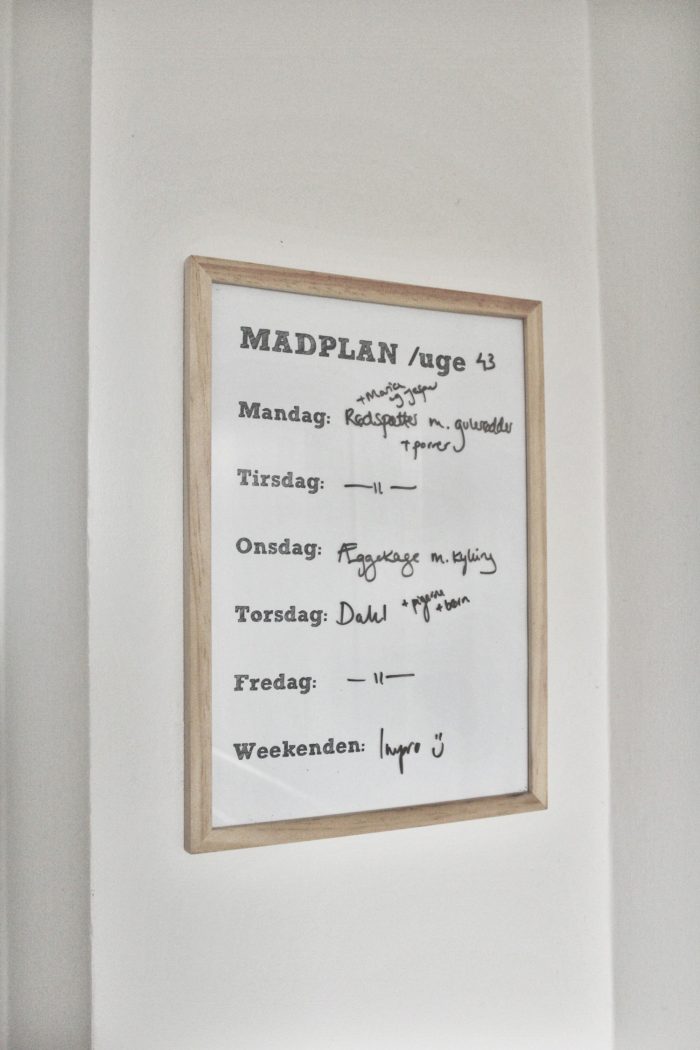 MADPLAN /uge 43
+ Maria
og Jesper
Mandag: Rødspætter m. gulerødder
+ porrer
Tirsdag: — 11 —
Onsdag: Æggekage m. kylling
Torsdag: Dahl + pigerne
+ børn
Fredag: — 11 —
Weekenden: Impro ü